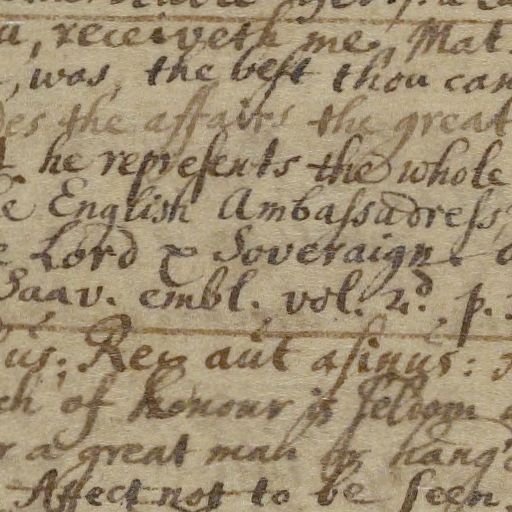 receiveth me, Mat.
, was, the best thou can
es the affairs the great
he represents the whole
e English Ambassadress
e Lord & Soveraign.
Saav. embl. vol. 2.d p.
us; Rex aut asinus:
ch of honour is seldom
r a great man or hang'd
Affect not to be seen